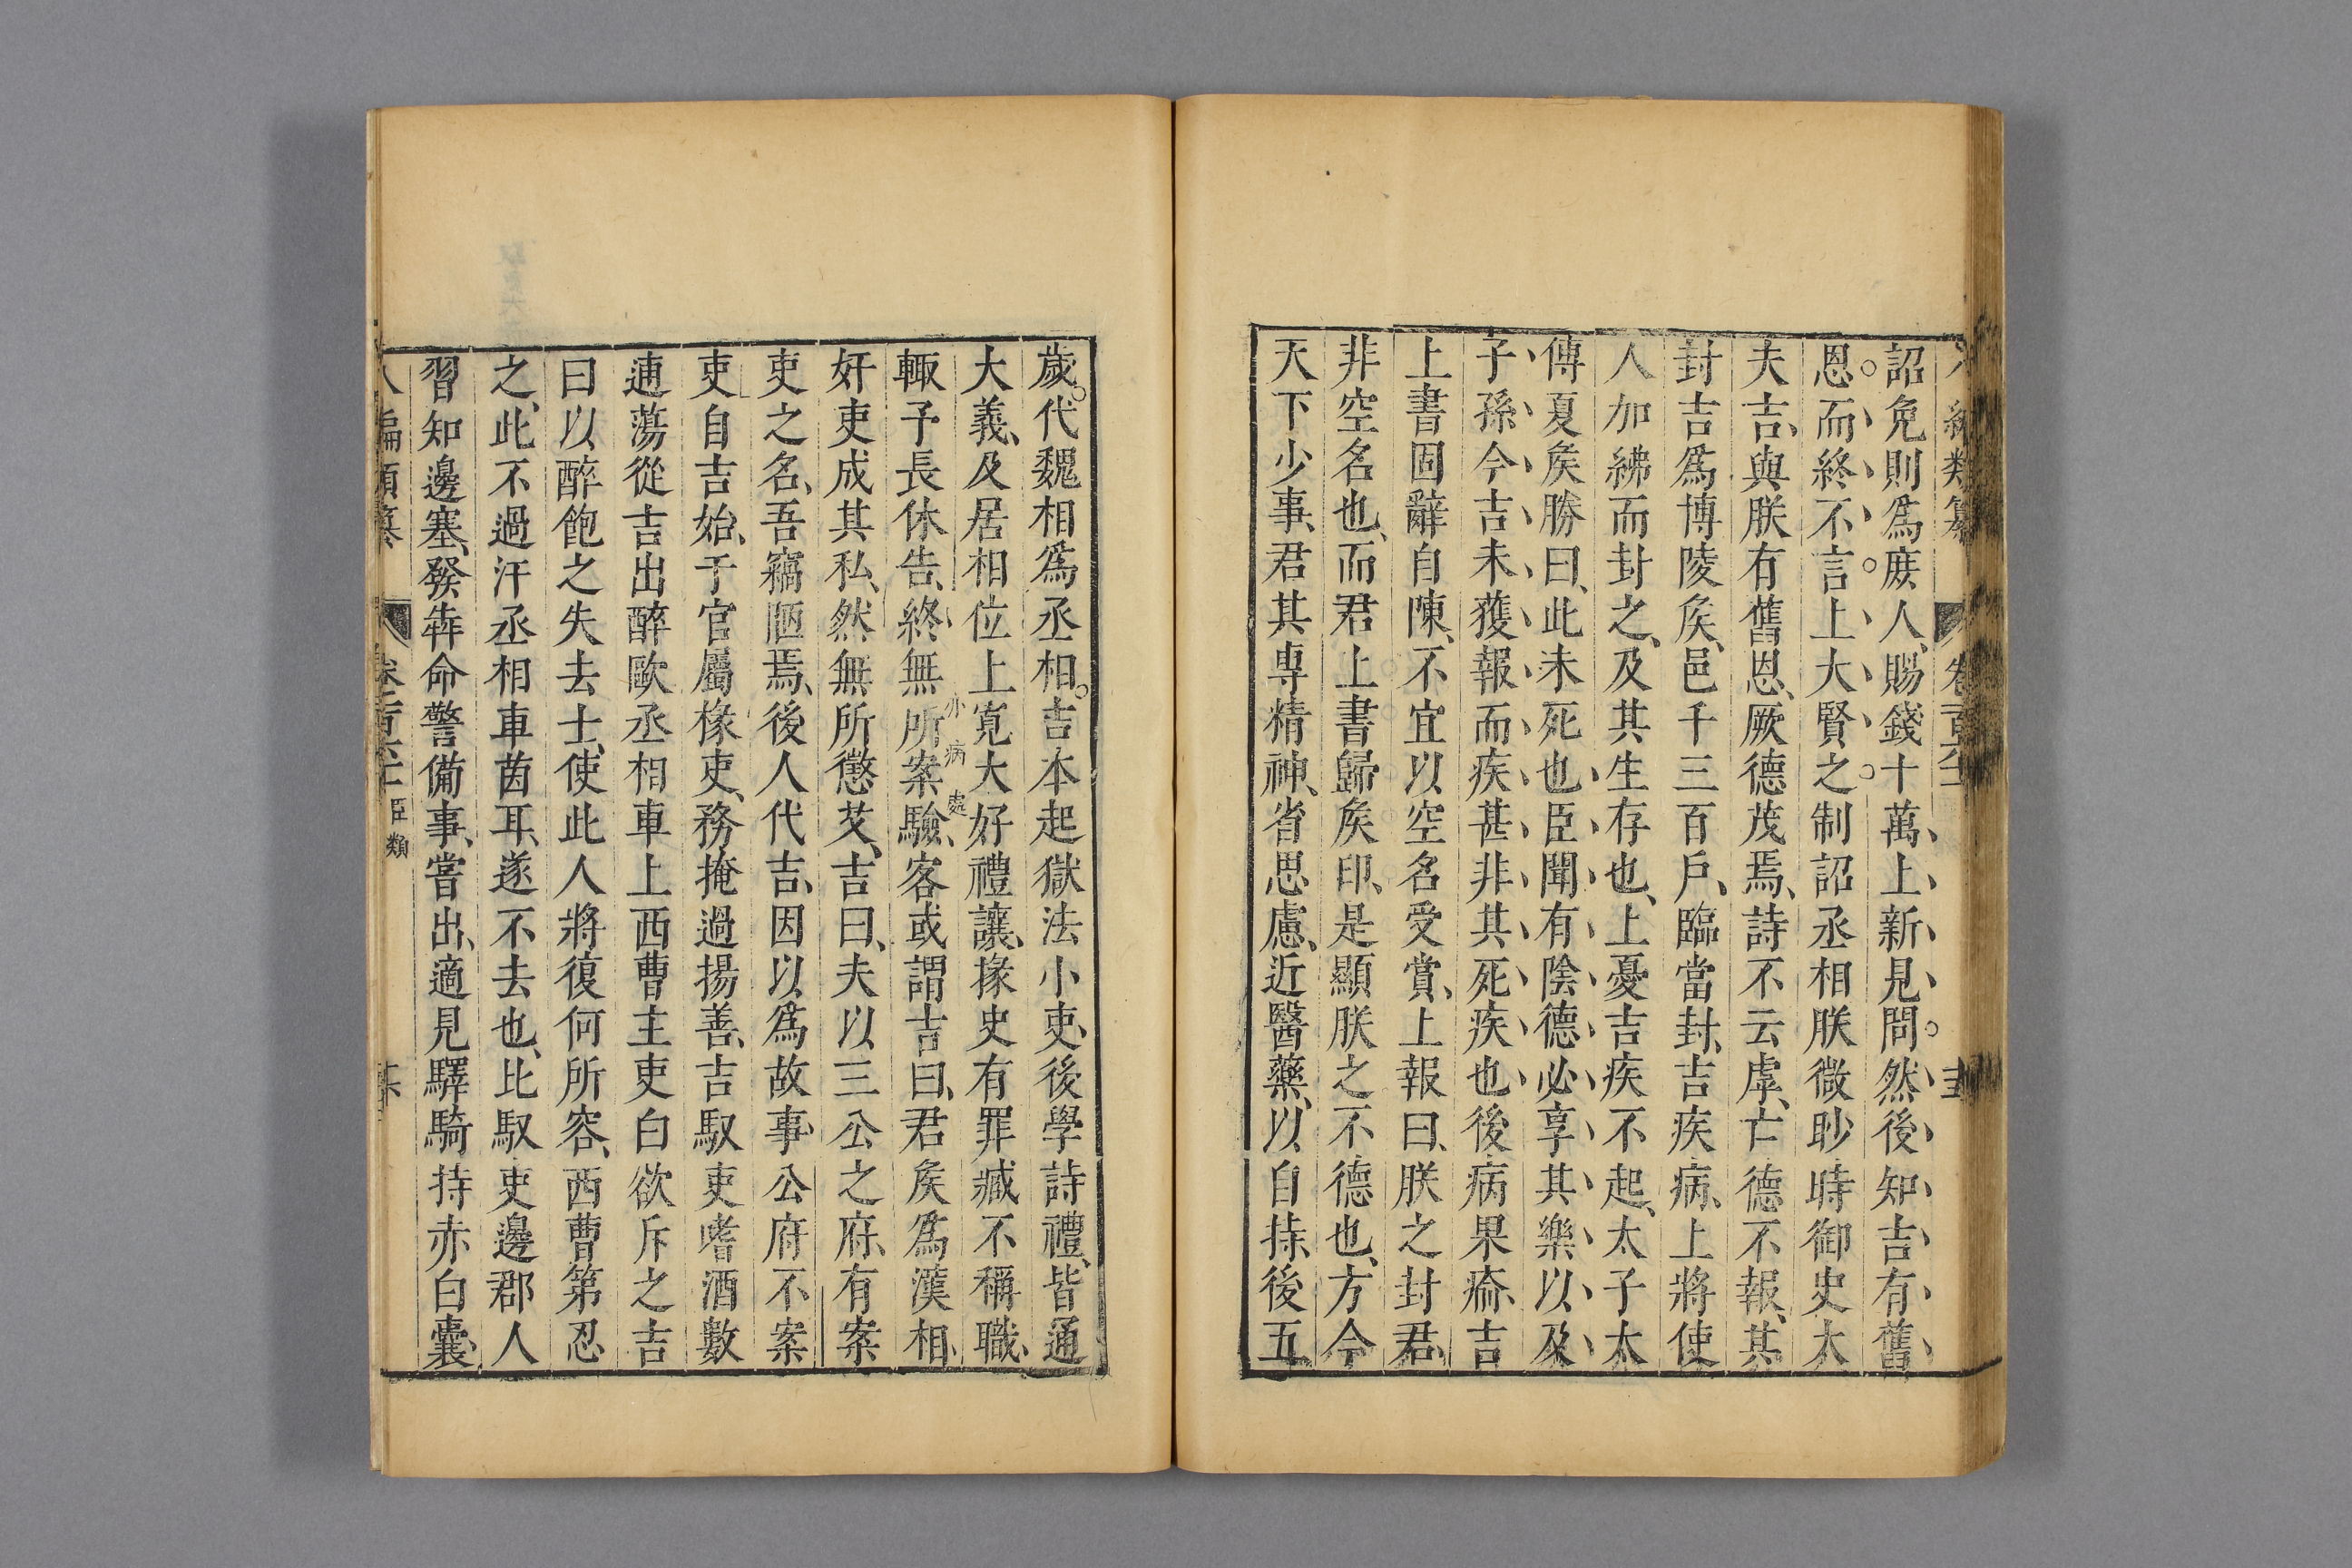 詔免則爲庻人、賜錢十萬、上新見問。然後知吉有舊
恩。而終不言。上大賢之。制詔丞相朕微眇時御史大
夫吉、與朕有舊恩、厥德茂焉、詩不云虖、亡德不報、其
封吉爲博陵矦、邑千三百戶、臨當封、吉疾病、上將使
人加紼而封之、及其生存也、上憂吉疾不起、太子太
傅夏矦勝曰、此未死也、臣聞有陰德必享其樂以及
子孫今吉未獲報而疾甚非其死疾也後病果瘉、吉
上書固辭自陳、不宜以空名受賞、上報曰、朕之封君、
非空名也、而君上書歸矦印、是顯朕之不德也、方今
天下少事、君其專精神、省思慮、近醫藥、以自持、後五
歲。代魏相爲丞相。吉本起獄法小吏、後學詩禮、皆通
大義、及居相位上寬大好禮讓、掾史有罪臧不稱職、
輙予長休告、終無所案驗、客或謂吉曰、君矦爲漢相、
亦病處
奸吏成其私、然無所懲艾、吉曰、夫以三公之府、有案
吏之名、吾竊陋焉、後人代吉、因以爲故事、公府不案
吏自吉始、于官屬掾吏、務掩過揚善、吉馭吏嗜酒數
逋蕩從吉出醉歐丞相車上西曹主吏白欲斥之吉
曰以醉飽之失去士、使此人將復何所容、西曹第忍
之、此不過汗丞相車茵耳、遂不去也、比馭吏邊郡人
習知邊塞、發犇命警備事、嘗出、適見驛騎持赤白囊、
八編類纂 卷一百六十 臣類